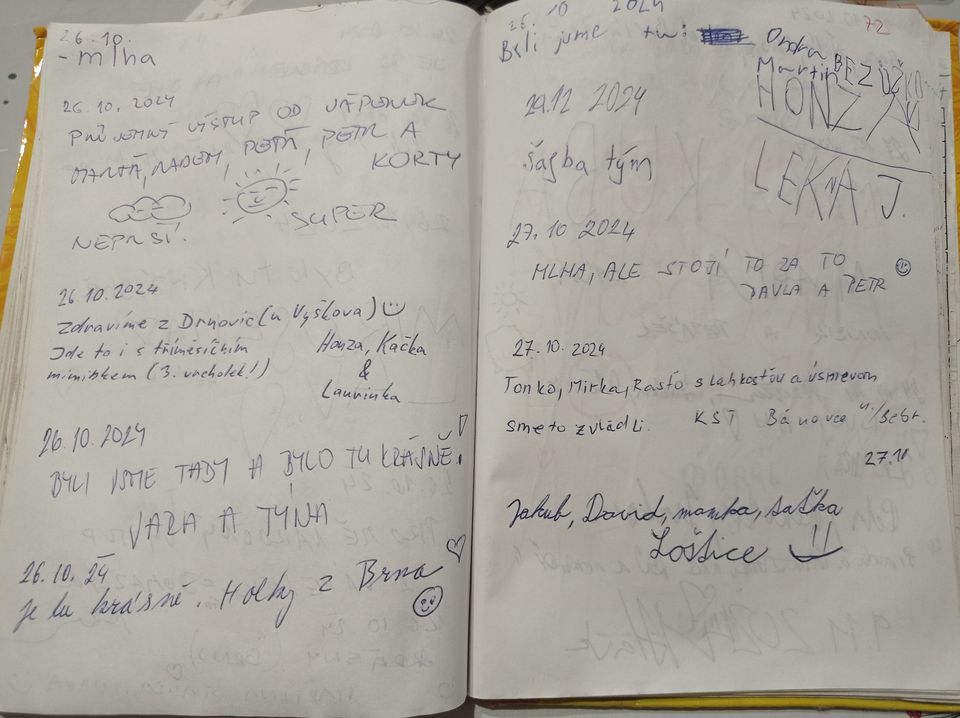 26.10.
- mlha
26.10.2024
PŘÍJEMNÝ VÝSTUP OD VÁPENEK
MARŤA, RADEM, PETR A
KORTY
NEPRŠÍ!
SUPER
26.10.2024
Zdravíme z Drnovic (u Vyškova)
Jde to i s tříměsíčním
miminkem (3. vrcholek!)
Honza, Kačka
&
Laurinka
26.10.2024
BYLI JSME TADY A BYLO TU KRÁSNĚ.
A TÝNA
26.10.24
je tu krásně. Holky z Brna
26.10 2024
72
Byli jsme tu: Ondra
Martin BEZ
HONZA
LENKA J.
29.12 2024
tým
27.10 2024
MLHA, ALE STOJÍ TO ZA TO
PAVLA A PETR
27.10.2024
Tonko, Mirka, Rasťo s ľahkosťou a úsmevom
sme to zvládli. KST Bánovce n/Bebr.
27.10
Jakub, David, mamka, taťka
Loštice